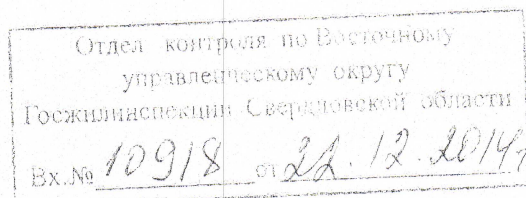 Отдел контроля по Восточному
управленческому округу
Госжилинспекции Свердловской области
Вх.№ 10918 от 22.12.2014г